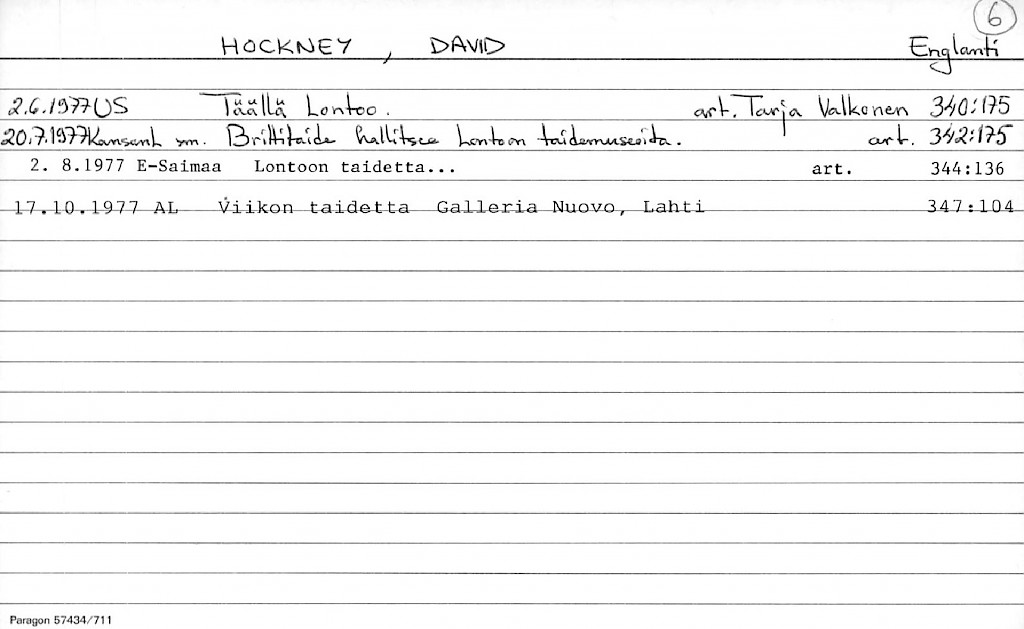 6
HOCKNEY, DAVID Englanti
2.6.1977 US Täällä Lontoo. art. Tarja Valkonen 340:175
20.7.1977 Kansanl sm. Brittitaide hallitsee Lontoon taidemuseoita. art. 342:175
2. 8.1977 E-Saimaa Lontoon taidetta... art. 344:136
17.10.1977 AL Viikon taidetta Galleria Nuovo, Lahti 347:104
Paragon 57434/711